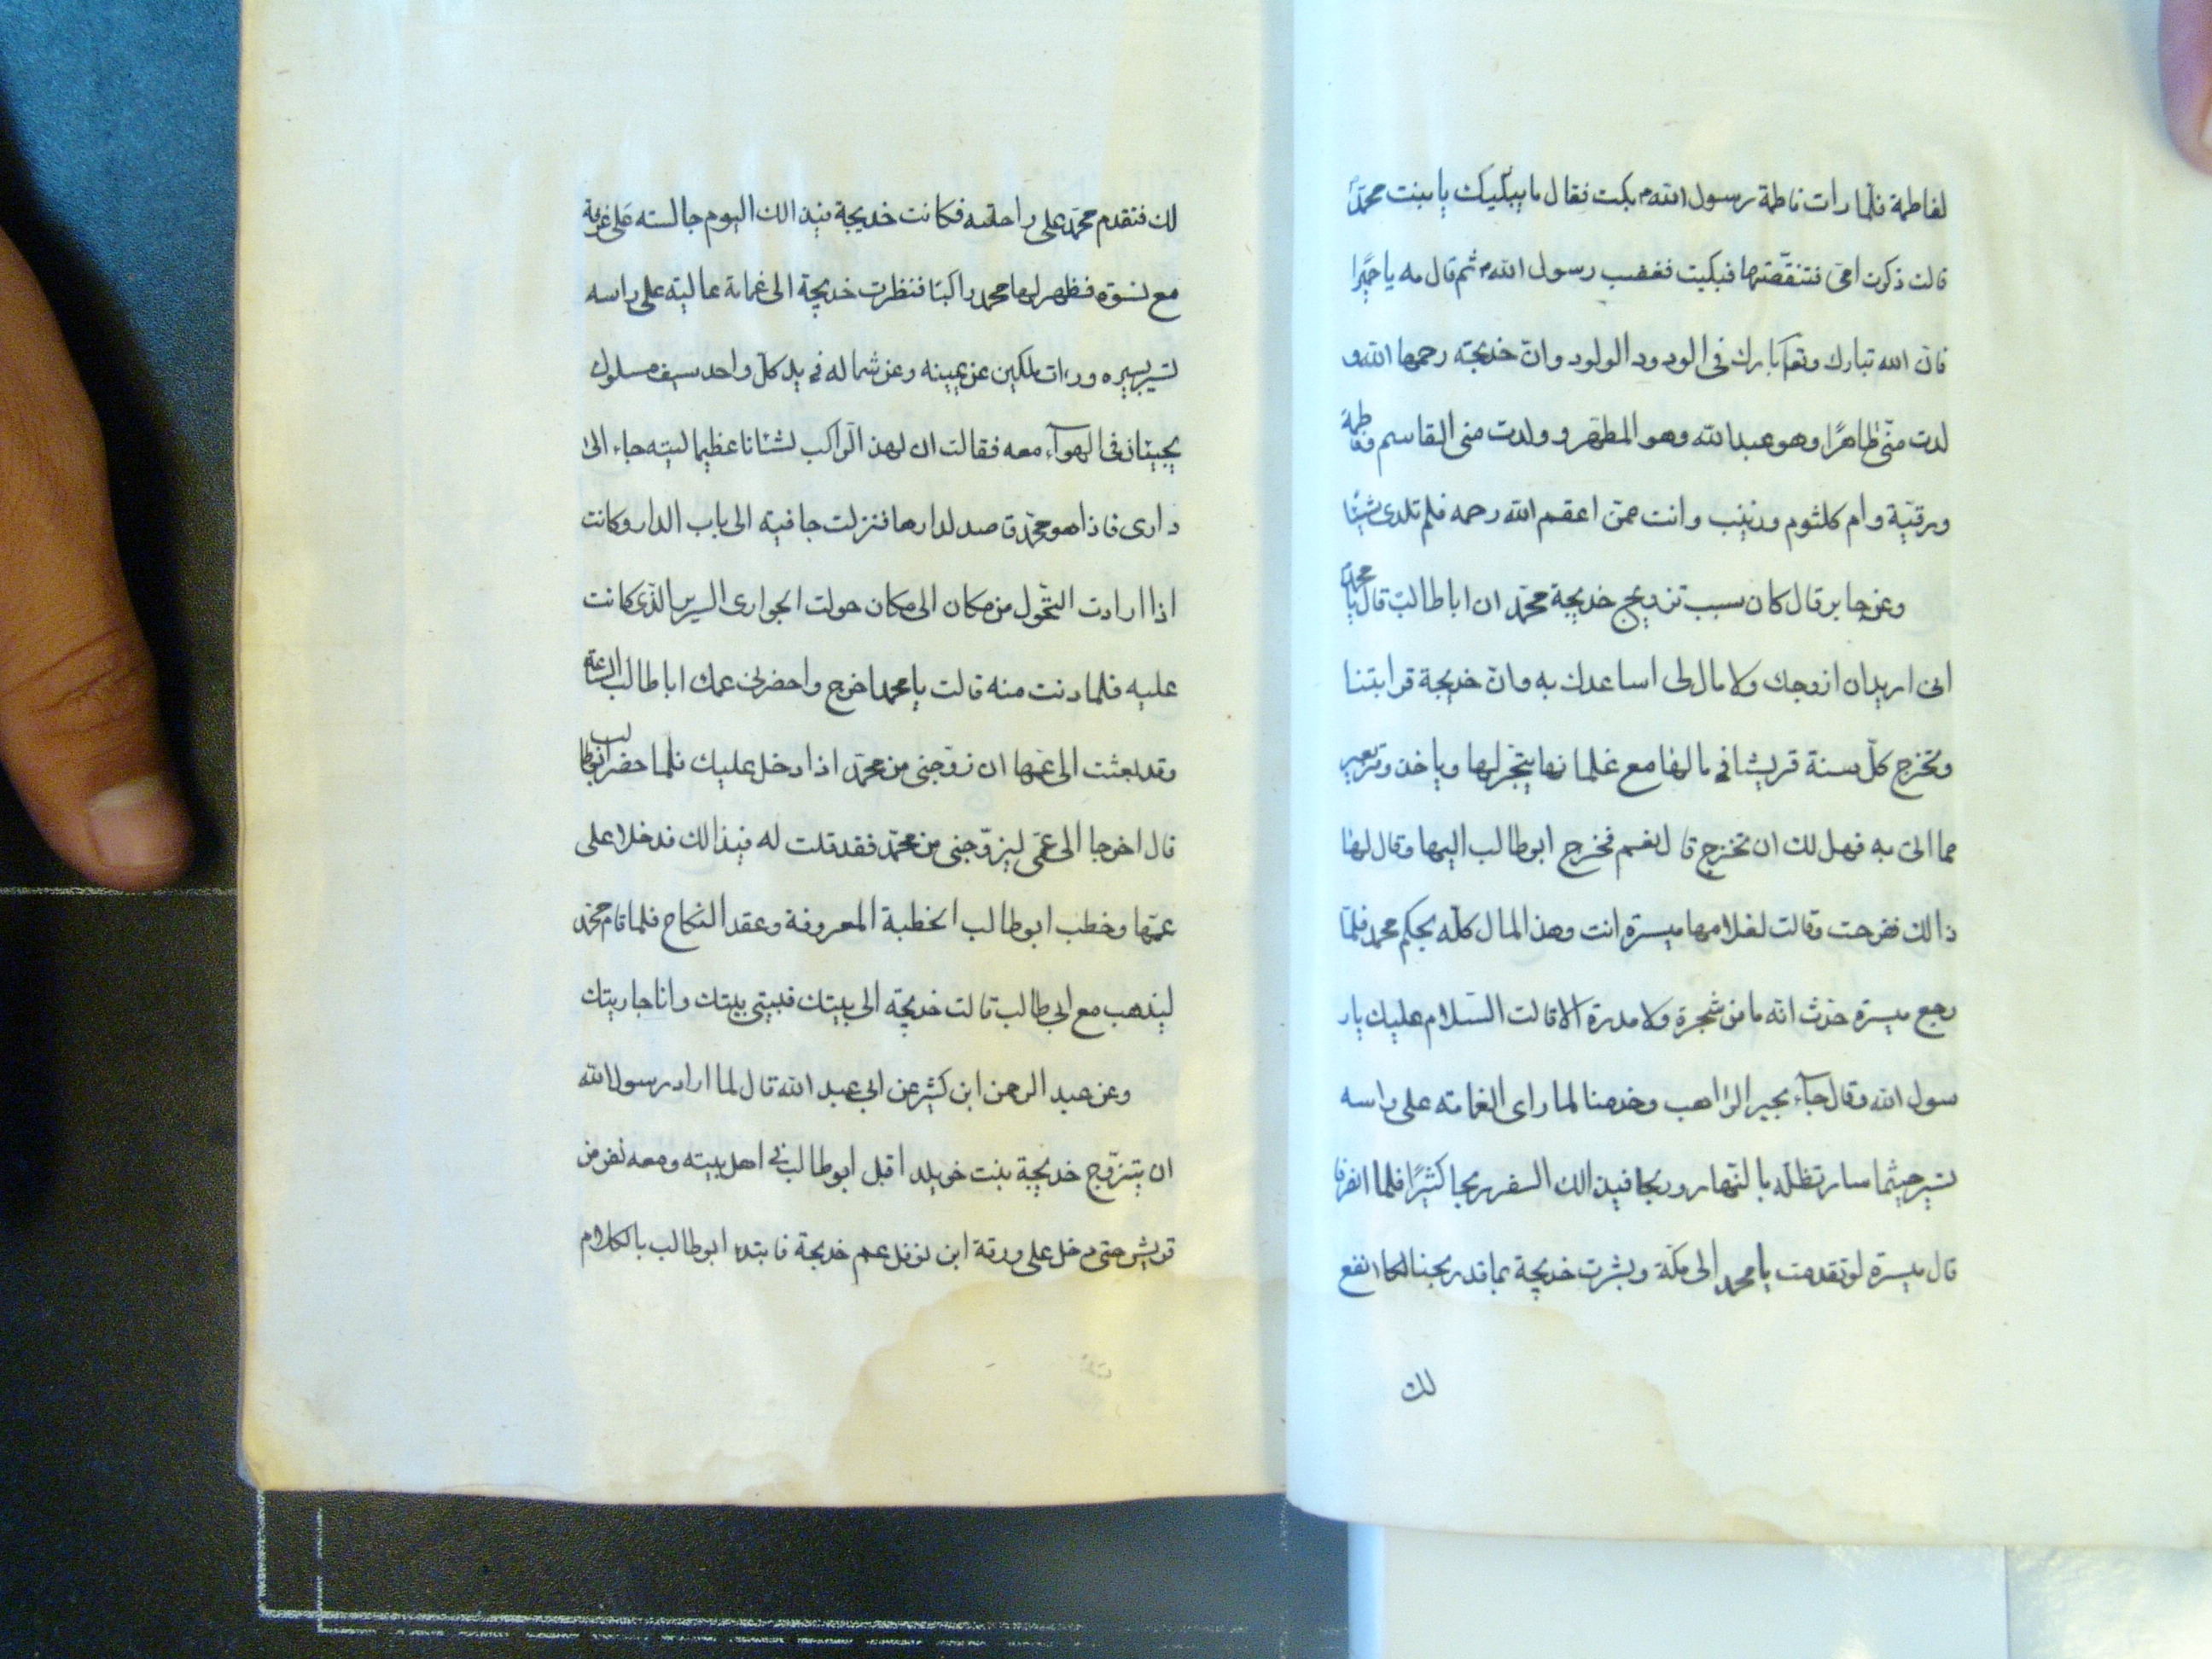 لفاطمة فلمّا رات فاطمة رسول الله م بكت فقال ما يبكيك يا بنت محمّد
قالت ذكرت امى فتنقّصتها فبكيت فغضب رسول الله م ثم قال مه يا حميرا
فان الله تبارك وتعا بارك فى الودود الولود وانّ خديجته رحمها الله و
لدت منّى طاهرًا وهو عبدالله وهو المطهر و ولدت منى القاسم وفاطمة
ورقيّة وام كلثوم وزينب وانت ممّن اعقم الله رحمه فلم تلدى شيئًا
وعن جابر قال كان سبب تزويج خديجة محمّد ان ابا طالب قال يا محمد
انى اريد ان ازوجك ولا مال لى اساعدك به وانّ خديجة قرابتنا
وتخرج كلّ سنة قريشا فى مالها مع غلمانها يتجر لها وياخذ وقر بعير
مما اتى به فهل لك ان تخرج قال نعم فخرج ابوطالب اليها وقال لها
ذالك ففرحت وقالت لغلامها ميسرة انت وهذ المال كلّه بحكم محمد فلمّا
رجع ميسرة حدّث انّه ما من شجرة ولا مدرة الا قالت السّلام عليك يا ر
سول الله وقال جآء بحير الرّاهب وخدمنا لما راى الغمامته على راسه
تسير حيثما سار تظلّه بالنّهار وربحا فيذالك السفر ربحا كثيرًا فلما انفرفا
قال ميسرة لو تقدمت يا محمد الى مكّة وبشرت خديجة بما قد ربحنا لكا انفع
لك
لك فتقدم محمّد على راحلته فكانت خديجة فيذالك اليوم جالسته على غرفة
مع نسوة فظهر لها محمد راكبًا فنظرت خديجة الى غمامة عاليته على راسه
تسير بسيره ورات ملكين عن يمينه وعن شماله فى يد كلّ واحد سيف مسلول
يجيئان فى الهوآء معه فقالت ان لهذ الرّاكب لشئانا عظيما ليته جاء الى
دارى فاذا هو محمّد قاصد لدارها فنزلت حافيته الى باب الدار وكانت
اذا ارادت التّحول من مكان الى مكان حولت الجوارى السرير الذّى كانت
عليه فلما دنت منه قالت يا محمد اخرج واحضرنى عمك اباطالب الساعة
وقد بعثت الى عمّها ان زوّجنى من محمّد اذا دخل عليك فلما حضر ابوطالب
قال اخرجا الى عمّى ليزوّجنى من محمّد فقد قلت له فيذالك فدخلا على
عمّها وخطب ابوطالب الخطبة المعروفة وعقد النكاح فلما قام محمّد
ليذهب مع ابى طالب قالت خديجة الى بيتك فبيتى بيتك وانا جاريتك
وعن عبد الرحمن ابن كثير عن ابى عبد الله قال لما اراد رسول الله
ان يتزوّج خديجة بنت خويلد اقبل ابوطالب فى اهل بيته ومعه نفر من
قريش حتى دخل على ورقة ابن نوفل عم خديجة فابتدا ابوطالب بالكلام